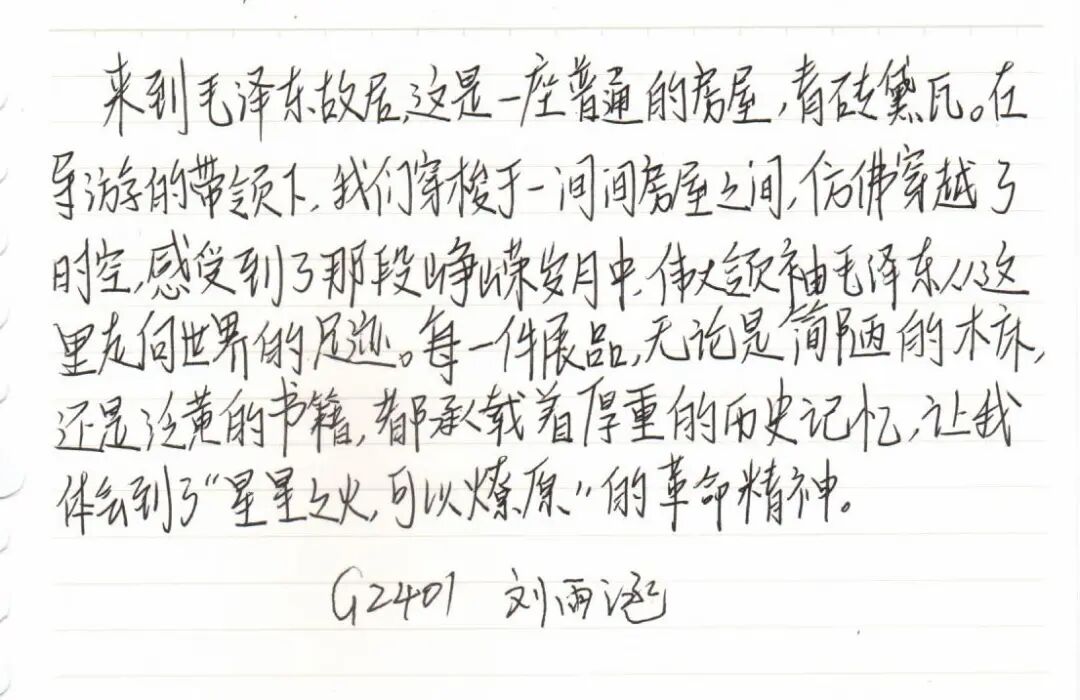 来到毛泽东故居,这是一座普通的房屋,青砖黛瓦。在
导游的带领下,我们穿梭于一间间房屋之间,仿佛穿越了
时空,感受到了那段峥嵘岁月中,伟大领袖毛泽东从这
里走向世界的足迹。每一件展品,无论是简陋的木床,
还是泛黄的书籍,都承载着厚重的历史记忆,让我
体会到了“星星之火,可以燎原”的革命精神。
G2401 刘雨